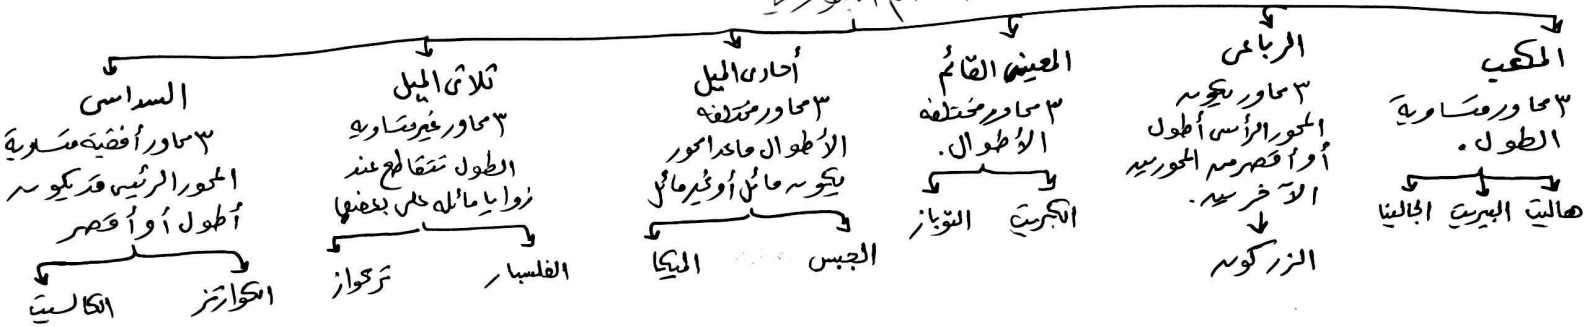 المكعب
٣ محاور متساوية
الطول.
هاليت البيريت الجالينا
الرباعى
٣ محاور يكون
المحور الرأسى أطول
أو أقصر من المحورين
الآخرين.
الزركون
المعينى القائم
٣ محاور مختلفه
الأطوال.
الكبريت التوباز
أحادى الميل
٣ محاور مختلفه
الأطوال ماعدا محور
يكون مائل أو غير مائل
الجبس الميكا
ثلاثى الميل
٣ محاور غير متساويه
الطول تتقاطع عند
زوايا مائله على بعضها
الفلسبار تركواز
السداسى
٣ محاور أفقية متساوية
المحور الرئيسى قد يكون
أطول أو أقصر
الكوارتز الكالسيت